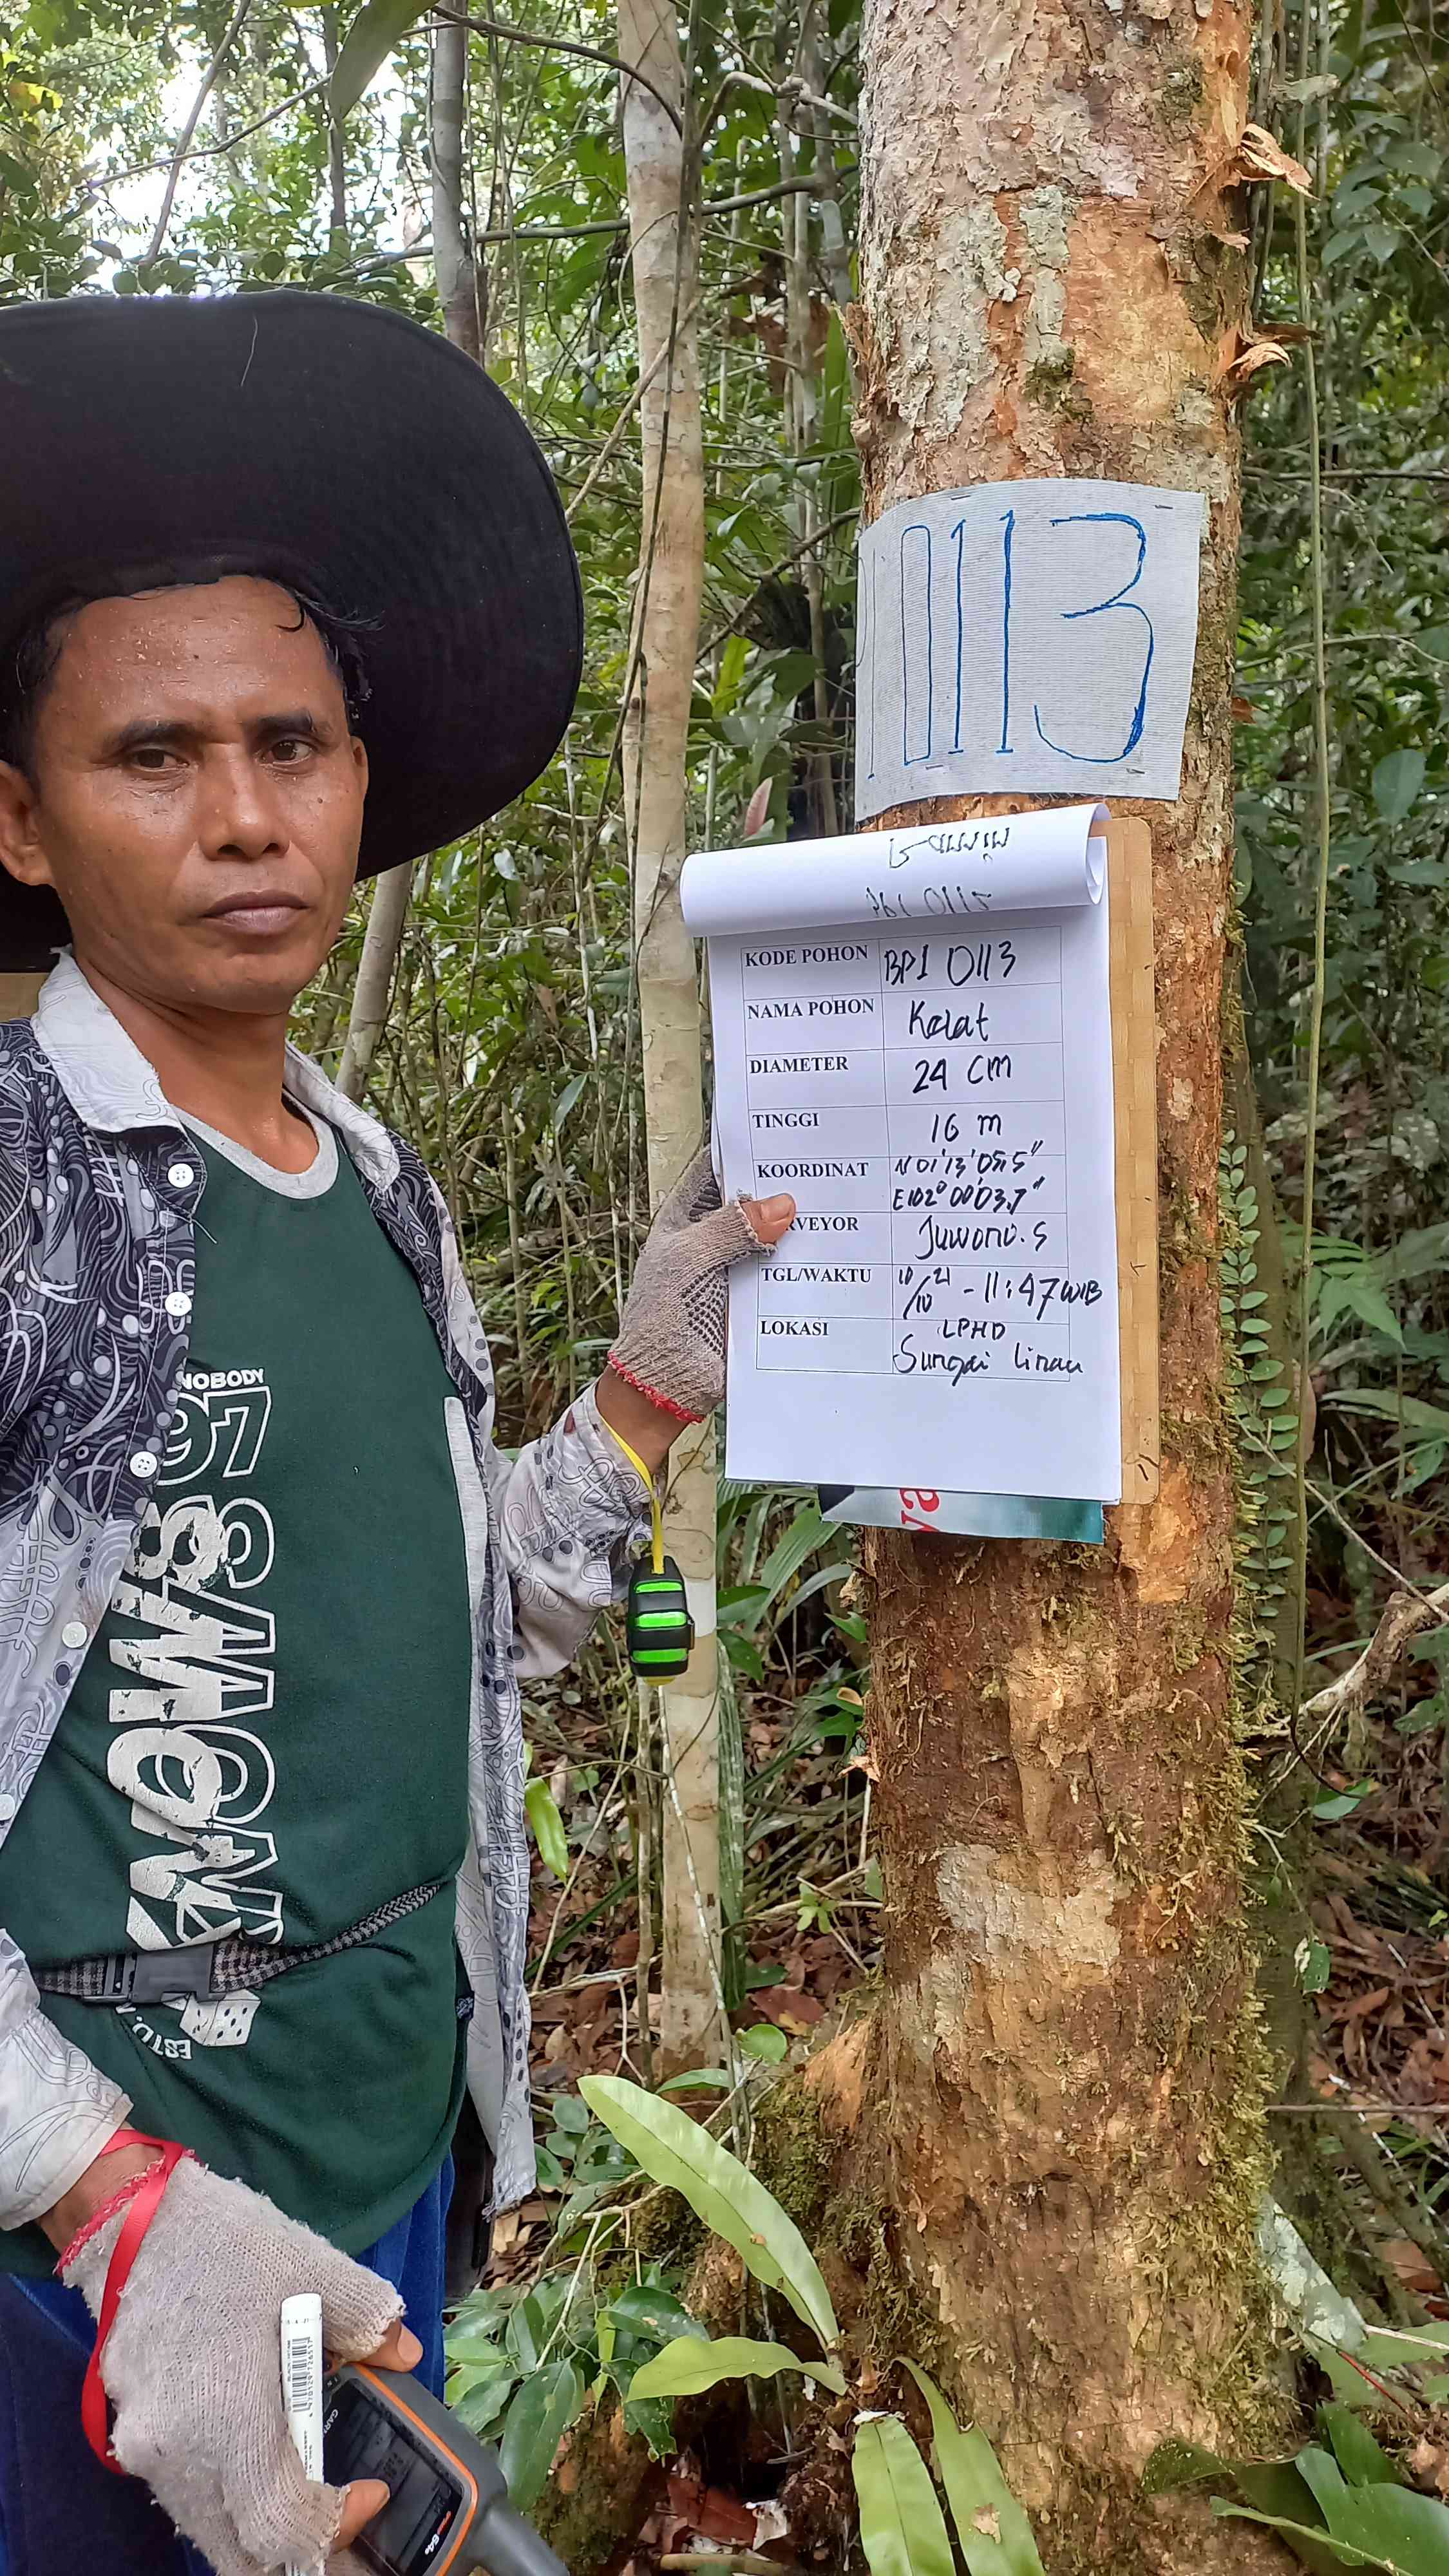 0113
KODE POHON BPI 0113
NAMA POHON Kelat
DIAMETER 24 CM
TINGGI 16 m
KOORDINAT N 01°13'05,5"
E102°00'03,7"
RVEYOR Juwono.S
TGL/WAKTU 10/10 21 - 11:47 WIB
LOKASI LPHD
Sungai Linau
NOBODY
97
ESTD.
GAR
ya